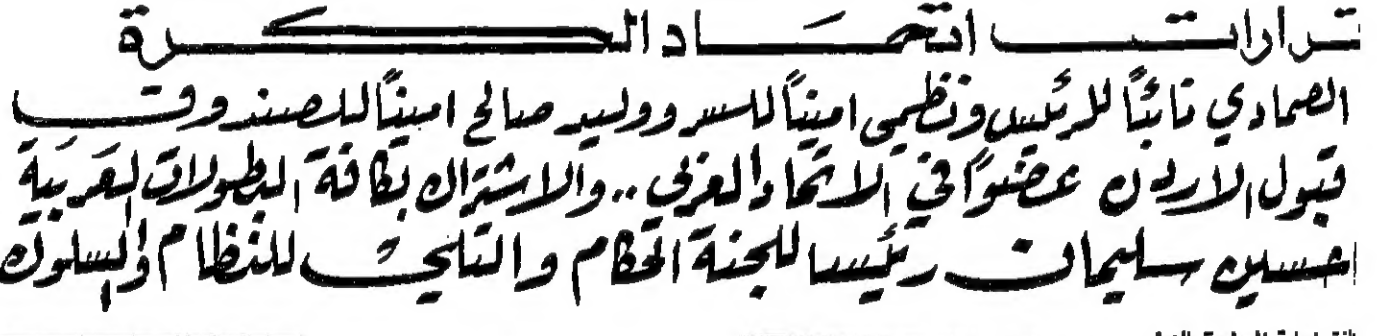 قرارات اتحاد الكرة
الصمادي نائباً للرئيس ونظمي اميناً للسر ووليد صالح اميناً للصندوق
قبول الاردن عضواً في الاتحاد العربي .. والاشتراك بكافة البطولات العربية
حسين سليمان رئيسا للجنة الحكام والتلي للنظام والسلوك